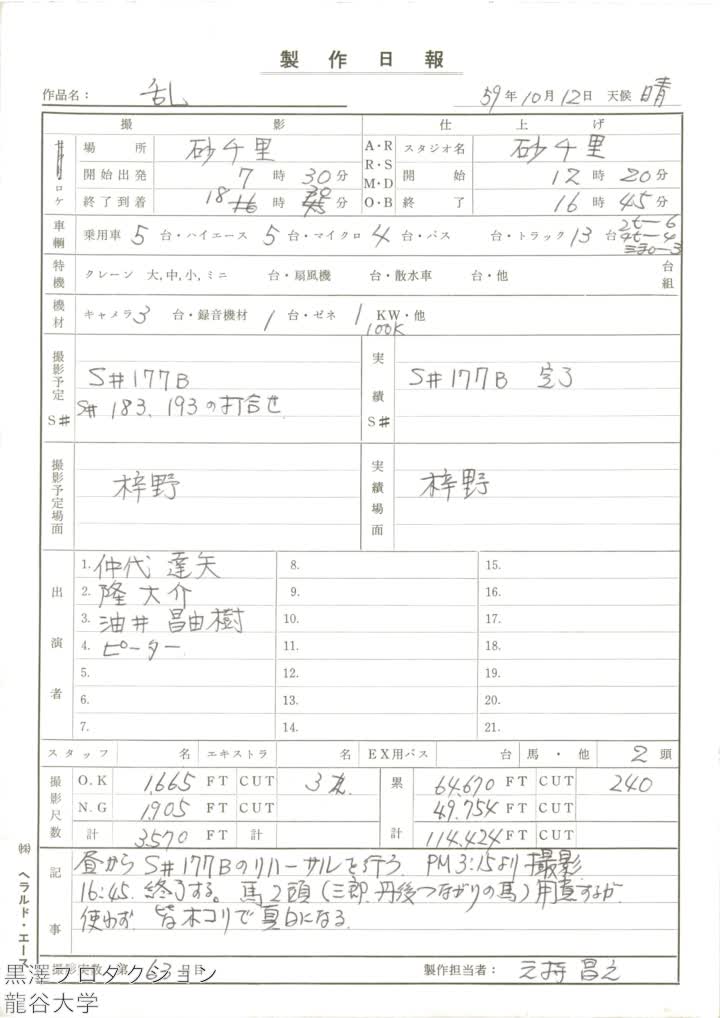 製作日報
作品名： 乱 59年10月12日 天候 晴
撮影 仕上げ
ロケ 場所 砂千里 A・R R・S M・D O・B スタジオ名 砂千里
開始出発 7時30分 開始 12時20分
終了到着 18時30分 終了 16時45分
車輌 乗用車 5台・ハイエース 5台・マイクロ 4台・バス 台・トラック 13台 2t－6 4t－4
特機 クレーン 大,中,小,ミニ 台・扇風機 台・散水車 台・他 台組
機材 キャメラ 3台・録音機材 1台・ゼネ 1 KW・他
100K
撮影予定 S# S#177B 実績 S# S#177B 完了
S# 183、193の打合せ
撮影予定場面 梓野 実績場面 梓野
出演者 1. 仲代達矢 8. 15.
2. 隆大介 9. 16.
3. 油井昌由樹 10. 17.
4. ピーター 11. 18.
5. 12. 19.
6. 13. 20.
7. 14. 21.
スタッフ 名 エキストラ 名 EX用バス 台 馬・他 2頭
撮影尺数 O.K 1,665 FT CUT 累計 64,670 FT CUT 240
N.G 1,905 FT CUT 49,754 FT CUT
計 3,570 FT 計 114,424 FT CUT
記事 昼から S#177Bのリハーサルを行う. PM3:15より撮影
16:45. 終了する。 馬2頭（三郎.丹後つながりの馬）用意するが
使わず. 皆ホコリで真白になる.
撮影実数 第63日目 製作担当者： 昌之
㈱ヘラルド・エース
黒澤プロダクション
龍谷大学